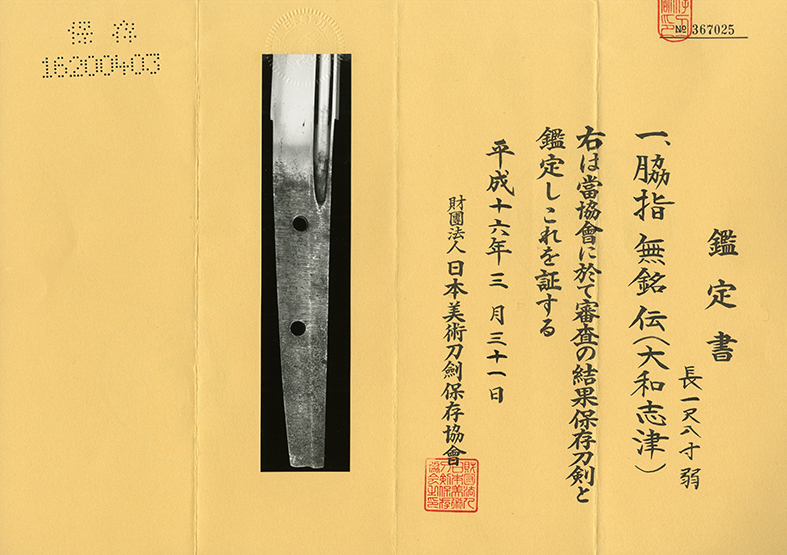 № 367025
鑑定書
一、脇指 無銘 伝(大和志津)
長一尺八寸弱
右は當協會に於て審査の結果保存刀剣と
鑑定しこれを証する
平成十六年三月三十一日
財團法人 日本美術刀劍保存協會
保存
16200403